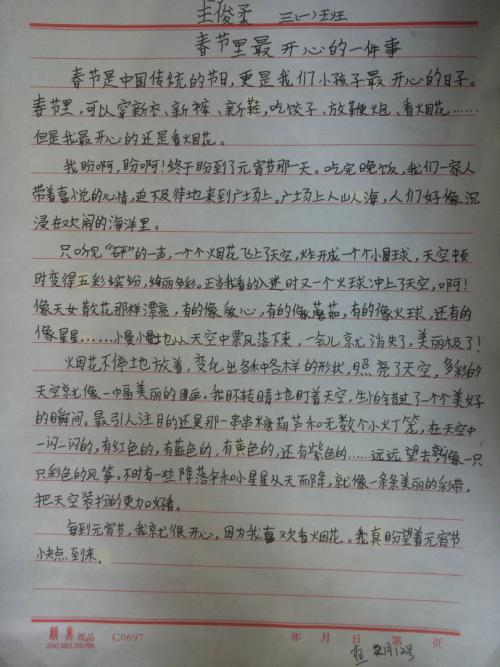 王俊柔 三(一)班
春节里最开心的一件事
春节是中国传统的节日,更是我们小孩子最开心的日子。
春节里,可以穿新衣、新裤、新鞋,吃饺子、放鞭炮、看烟花……
但是我最开心的还是看烟花。
我盼啊,盼啊!终于盼到了元宵节那一天。吃完晚饭,我们一家人
带着喜悦的心情,迫不及待地来到广场上。广场上人山人海,人们好像沉
浸在欢闹的海洋里。
只听见“砰”的一声,一个个烟花飞上了天空,炸开成一个个小圆球,天空顿
时变得五彩缤纷,绚丽多彩。正当我看的入迷时又一个火球冲上了天空,啊!
像天女散花那样漂亮,有的像爱心,有的像蘑菇,有的像火球,还有的
像星星……小星小星也从天空中飘落下来,一会儿就消失了,美丽极了!
烟花不停地放着,变化出各种各样的形状,照亮了天空,多彩的
天空就像一幅美丽的图画。我目不转睛地盯着天空,生怕错过了一个个美好
的瞬间,最引人注目的还是那一串串糖葫芦和无数个小火丁笼,在天空中
一闪一闪的,有红色的,有蓝色的,有黄色的,还有紫色的……远远望去就像一只
只彩色的风筝。不时有一些降落伞和小星星从天而降,就像一条条美丽的彩带,
把天空装扮的更加好看。
每到元宵节,我就很开心,因为我喜欢看烟花。我真盼望着元宵节
快点到来。
精美纸品 C0697 年 月 日 第 页
JING MEI ZHI PIN
查 2月12号